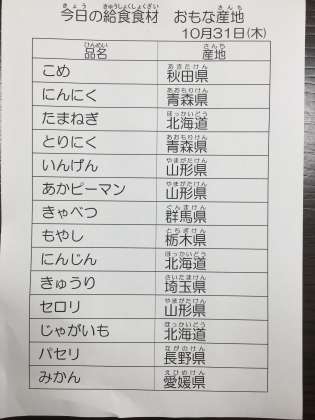 今日の給食食材　おもな産地
10月31日(木)
品名 産地
こめ 秋田県
にんにく 青森県
たまねぎ 北海道
とりにく 青森県
いんげん 山形県
あかピーマン 山形県
きゃべつ 群馬県
もやし 栃木県
にんじん 北海道
きゅうり 埼玉県
セロリ 山形県
じゃがいも 北海道
パセリ 長野県
みかん 愛媛県